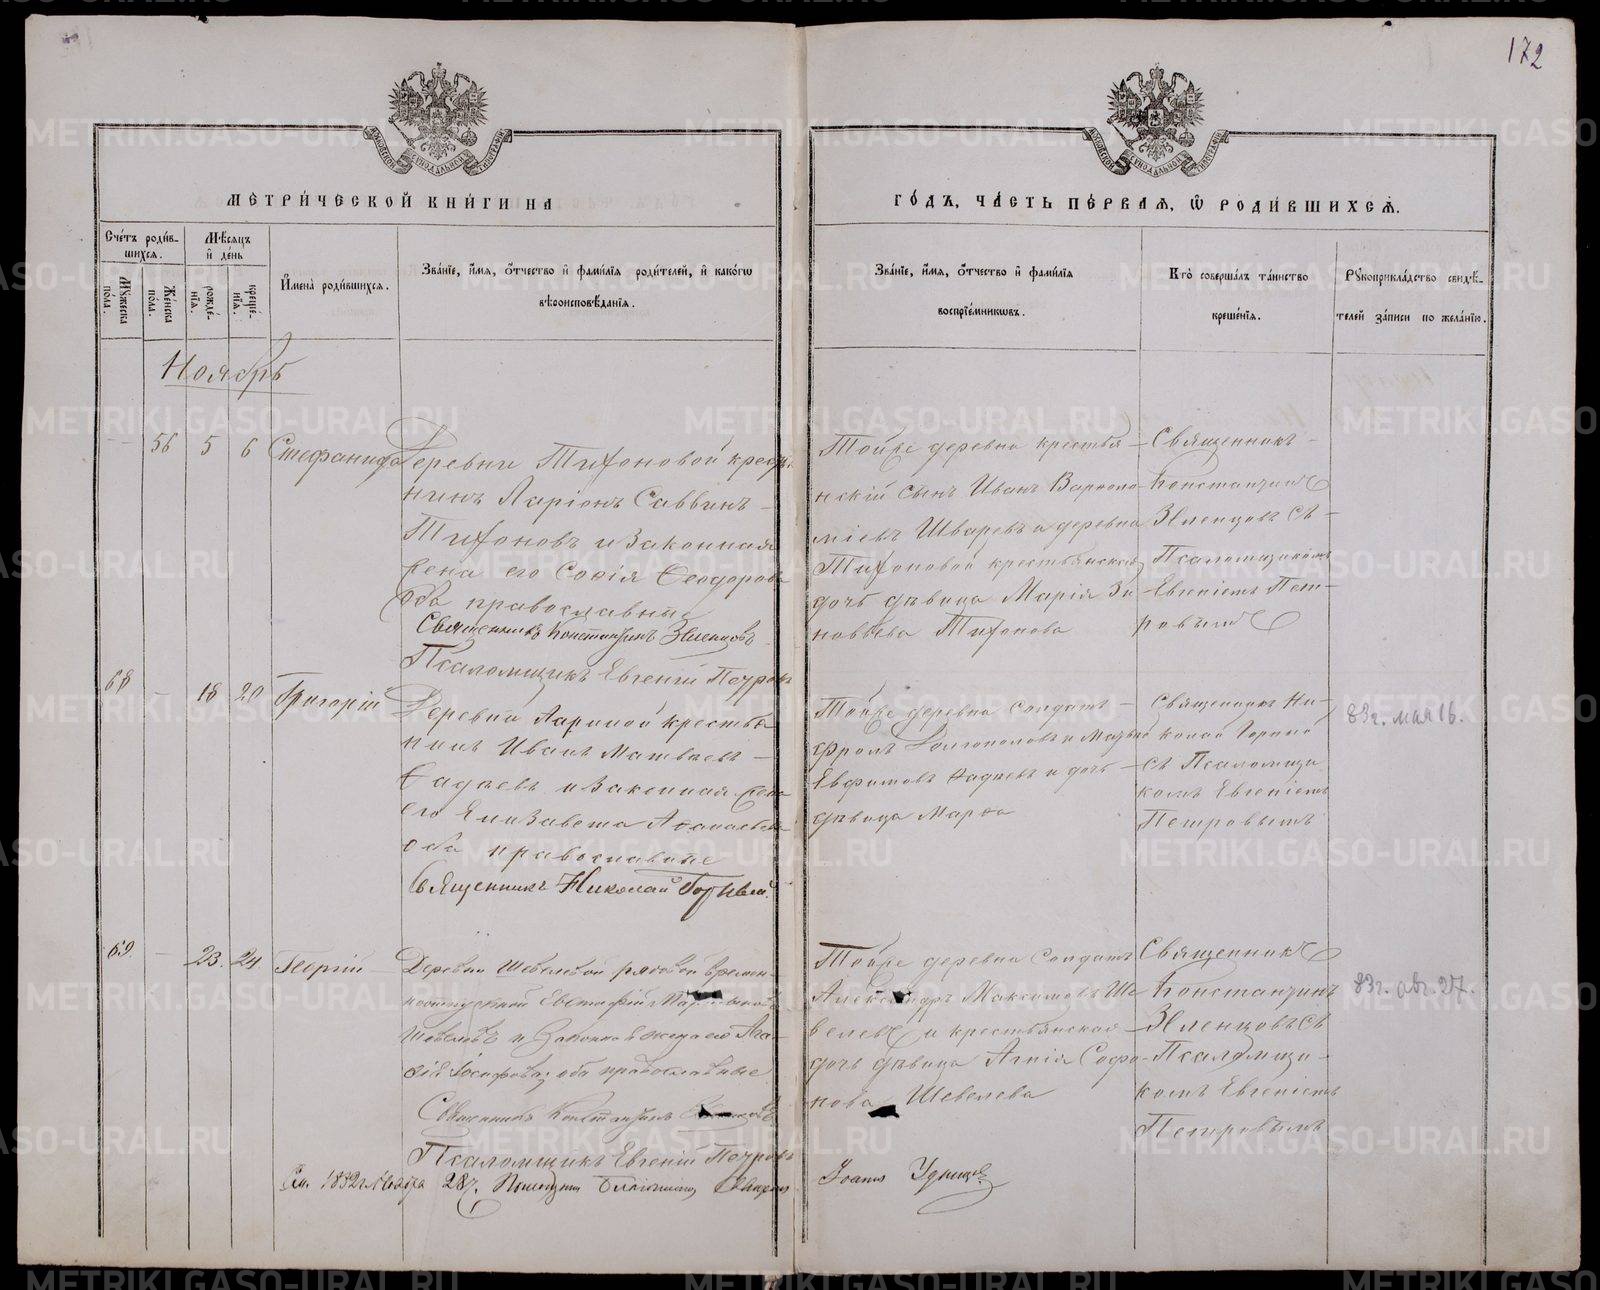 172
МЕТРИ́ЧЕСКОЙ КНИ́ГИ НА
ГО́ДЪ, ЧА́СТЬ ПЕ́РВАЯ, Ѡ РОДИ́ВШИХСЯ.
Сче́тъ роди́в-
шихся.
Мѣ́сяцъ
и де́нь
Му́жеска пола.
Же́нска пола.
рожде́-
нія.
креще́-
нія.
Имена̀ роди́вшихся.
Зва́ніе, и́мя, о́тчество и фами́лія роди́телей, и како́гѡ
вѣроисповѣ́данія.
Зва́ніе, и́мя, о́тчество и фами́лія
воспріе́мниковъ.
Кто̀ соверша́лъ та́инство
креще́нія.
Рукоприкла́дство свидѣ́-
телей за́писи по жела́нію.
Ноябрь
56 5 6 Стефанида
Деревни Тихоновой крестья
нинъ Ларіонъ Саввинъ
Тихоновъ и законная
жена его Софія Ѳеодорова
оба православные
Священникъ Константинъ
Псаломщикъ Евгеній Петровъ
Тойже деревни крестья-
нскій сынъ Иванъ Варѳоло-
міевъ Шваревъ и деревни
Тихоновой крестьянская
дочь дѣвица Марія Зи
новьева Тихонова
Священникъ
Константинъ
съ
Псаломщикомъ
Евгеніемъ Пет-
ровымъ
68 - 18 20 Григорій
Деревни Лариной крестья
нинъ Иванъ Матвѣевъ
Ѳадѣевъ и законная жена
его Елизавета Аѳанасьева
оба православные
Священникъ Николай
Тойже деревни солдатъ
Евфимовъ Ѳадѣевъ и дочь
дѣвица Марѳа
Священникъ Ни-
колай
съ Псаломщи
комъ Евгеніемъ
Петровымъ
83г. мая 16.
69. - 23. 24 Георгій
Деревни Шевелевой рядовой времен-
ноотпускной Евстафій
Шевелевъ и законная жена его Ага-
ѳія Іосифова; оба православные
Священникъ Константинъ
Псаломщикъ Евгеній Петровъ
Тойже деревни Солдатъ
Александръ Максимовъ Ше
велевъ и крестьянская
дочь дѣвица Агнія Софо-
нова Шевелева
Священникъ
Константинъ
съ
Псаломщи-
комъ Евгеніемъ
Петровымъ
83г. авг. 27.
28